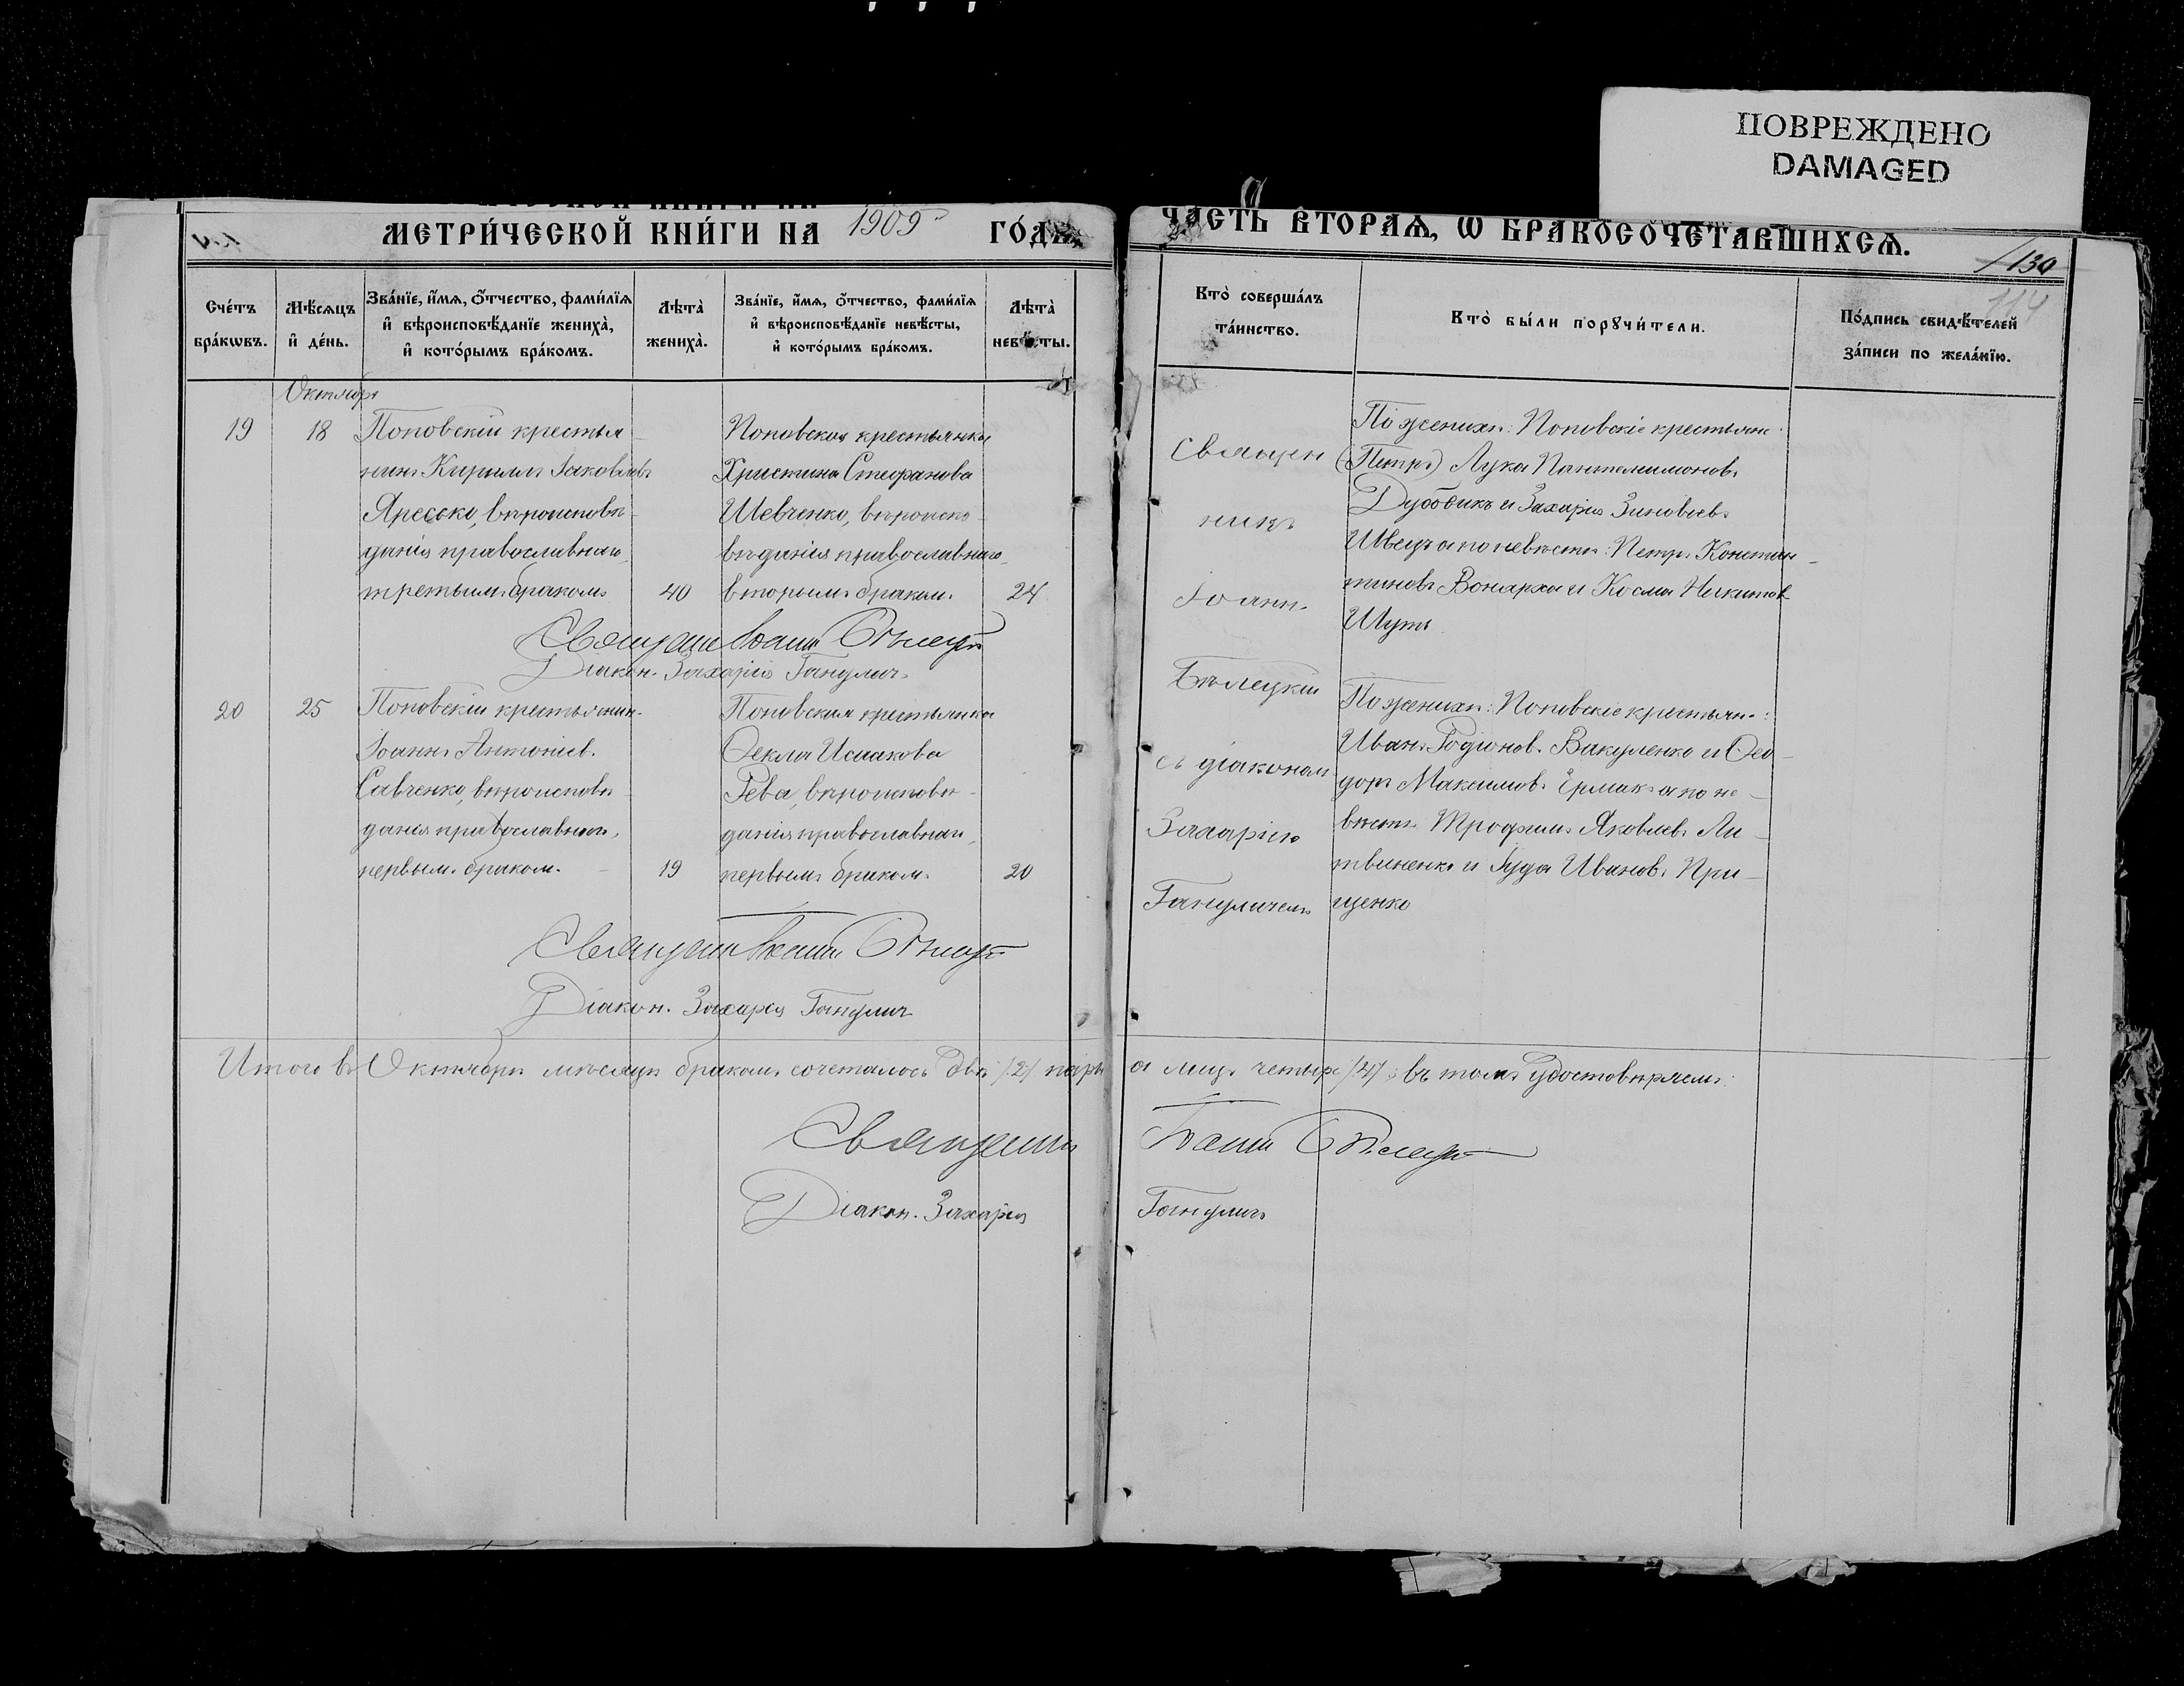 ПОВРЕЖДЕНО
DAMAGED
МЕТРИ́ЧЕСКОЙ КНИ́ГИ НА 1909 ГО́ДЪ,
ЧАСТЬ ВТОРАѦ, Ѡ БРАКОСОЧЕТАВШИХСѦ.
130
114
Сче́тъ бра́кѡвъ.
Мѣ́сяцъ и҆ де́нь.
Зва́нїе, и҆́мѧ, ѻ҆́тчество, фами́лїѧ и҆ вѣроисповѣ́данїе жениха̀, и҆ кото́рымъ бра́комъ.
Лѣта̀ жениха̀.
Зва́нїе, и҆́мѧ, ѻ҆́тчество, фами́лїѧ и҆ вѣроисповѣ́данїе невѣ́сты, и҆ кото́рымъ бра́комъ.
Лѣта̀ невѣ́сты.
Кто̀ соверша́лъ та́инство.
Кто̀ бы́ли порꙋчи́тели.
По́дпись свидѣ́телей за́писи по жела́нїю.
Октября
19
18
Поповскій крестья-
нинъ Кириллъ Іаковлевъ
Яресько, вѣроисповѣ-
данія православнаго,
третьимъ бракомъ
40
Поповская крестьянка
Христина Стефанова
Шевченко, вѣроиспо-
вѣданія православнаго,
вторымъ бракомъ.
24
Священ
никъ
Іоаннъ
Бѣлецкій
съ діакономъ
Захаріею
Гангуличемъ
По женихѣ: Поповскіе крестьяне:
(Петръ) Лука Пантелеимоновъ
Дубовикъ и Захарія Зиновьевъ
Швецъ а по невѣстѣ: Петръ Констан-
тиновъ Вонарха и Косма Никитовъ
Шутъ
Священникъ Іоаннъ Бѣлецкій
Діаконъ Захарія Гангуличъ
20
25
Поповскій крестьянинъ
Іоаннъ Антоніевъ
Савченко, вѣроисповѣ-
данія православнаго,
первымъ бракомъ.
19
Поповская крестьянка
Ѳекла Исаакова
Рева, вѣроисповѣ-
данія православнаго,
первымъ бракомъ.
20
По женихѣ: Поповскіе крестьяне:
Иванъ Родіоновъ Вакуленко и Ѳео-
доръ Максимовъ Ермакъ а по не-
вѣстѣ Трофимъ Яковлевъ Ли-
твиненко и Іуда Ивановъ При-
щенко
Священникъ Іоаннъ Бѣлецкій
Діаконъ Захарія Гангуличъ
Итого въ Октябрѣ мѣсяцѣ бракомъ сочеталось двѣ /2/ пары а лицъ четыре /4/; въ томъ удостовѣряемъ:
Священникъ Іоаннъ Бѣлецкій
Діаконъ Захарія Гангуличъ